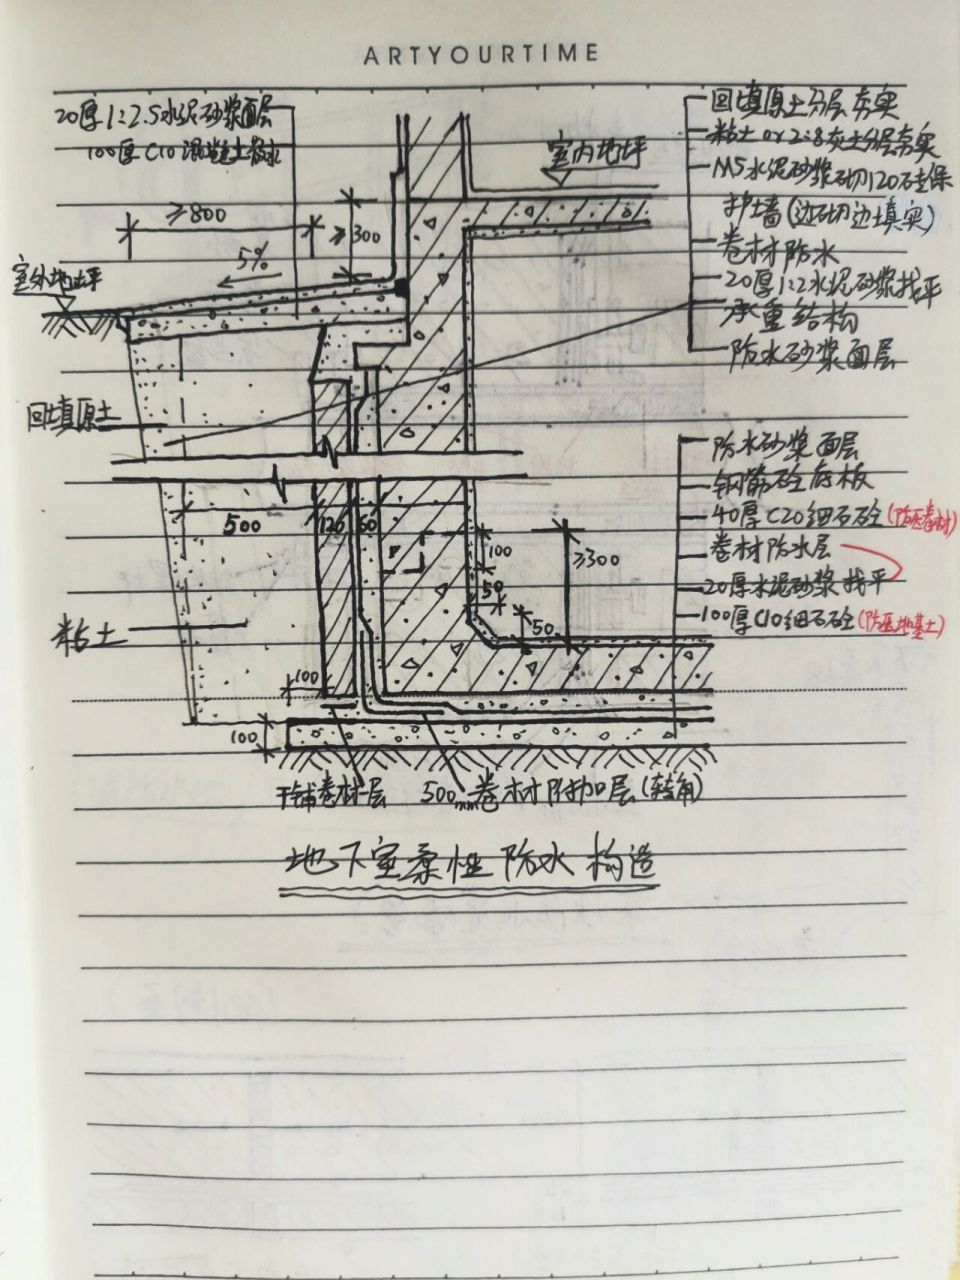 ARTYOURTIME
20厚1:2.5水泥砂浆面层
100厚C10混凝土散水
≥800
≥300
5%
室外地坪
室内地坪
回填原土分层夯实
粘土 or 2:8灰土分层夯实
M5水泥砂浆砌120砖保
护墙(边砌边填实)
卷材防水
20厚1:2水泥砂浆找平
承重结构
防水砂浆面层
回填原土
防水砂浆面层
钢筋砼底板
40厚C20细石砼(防压卷材)
卷材防水层
20厚水泥砂浆找平
100厚C10细石砼(防压地基土)
500
120
60
100
50
50
≥300
粘土
100
100
干铺卷材一层
500mm卷材附加层(转角)
地下室柔性防水构造